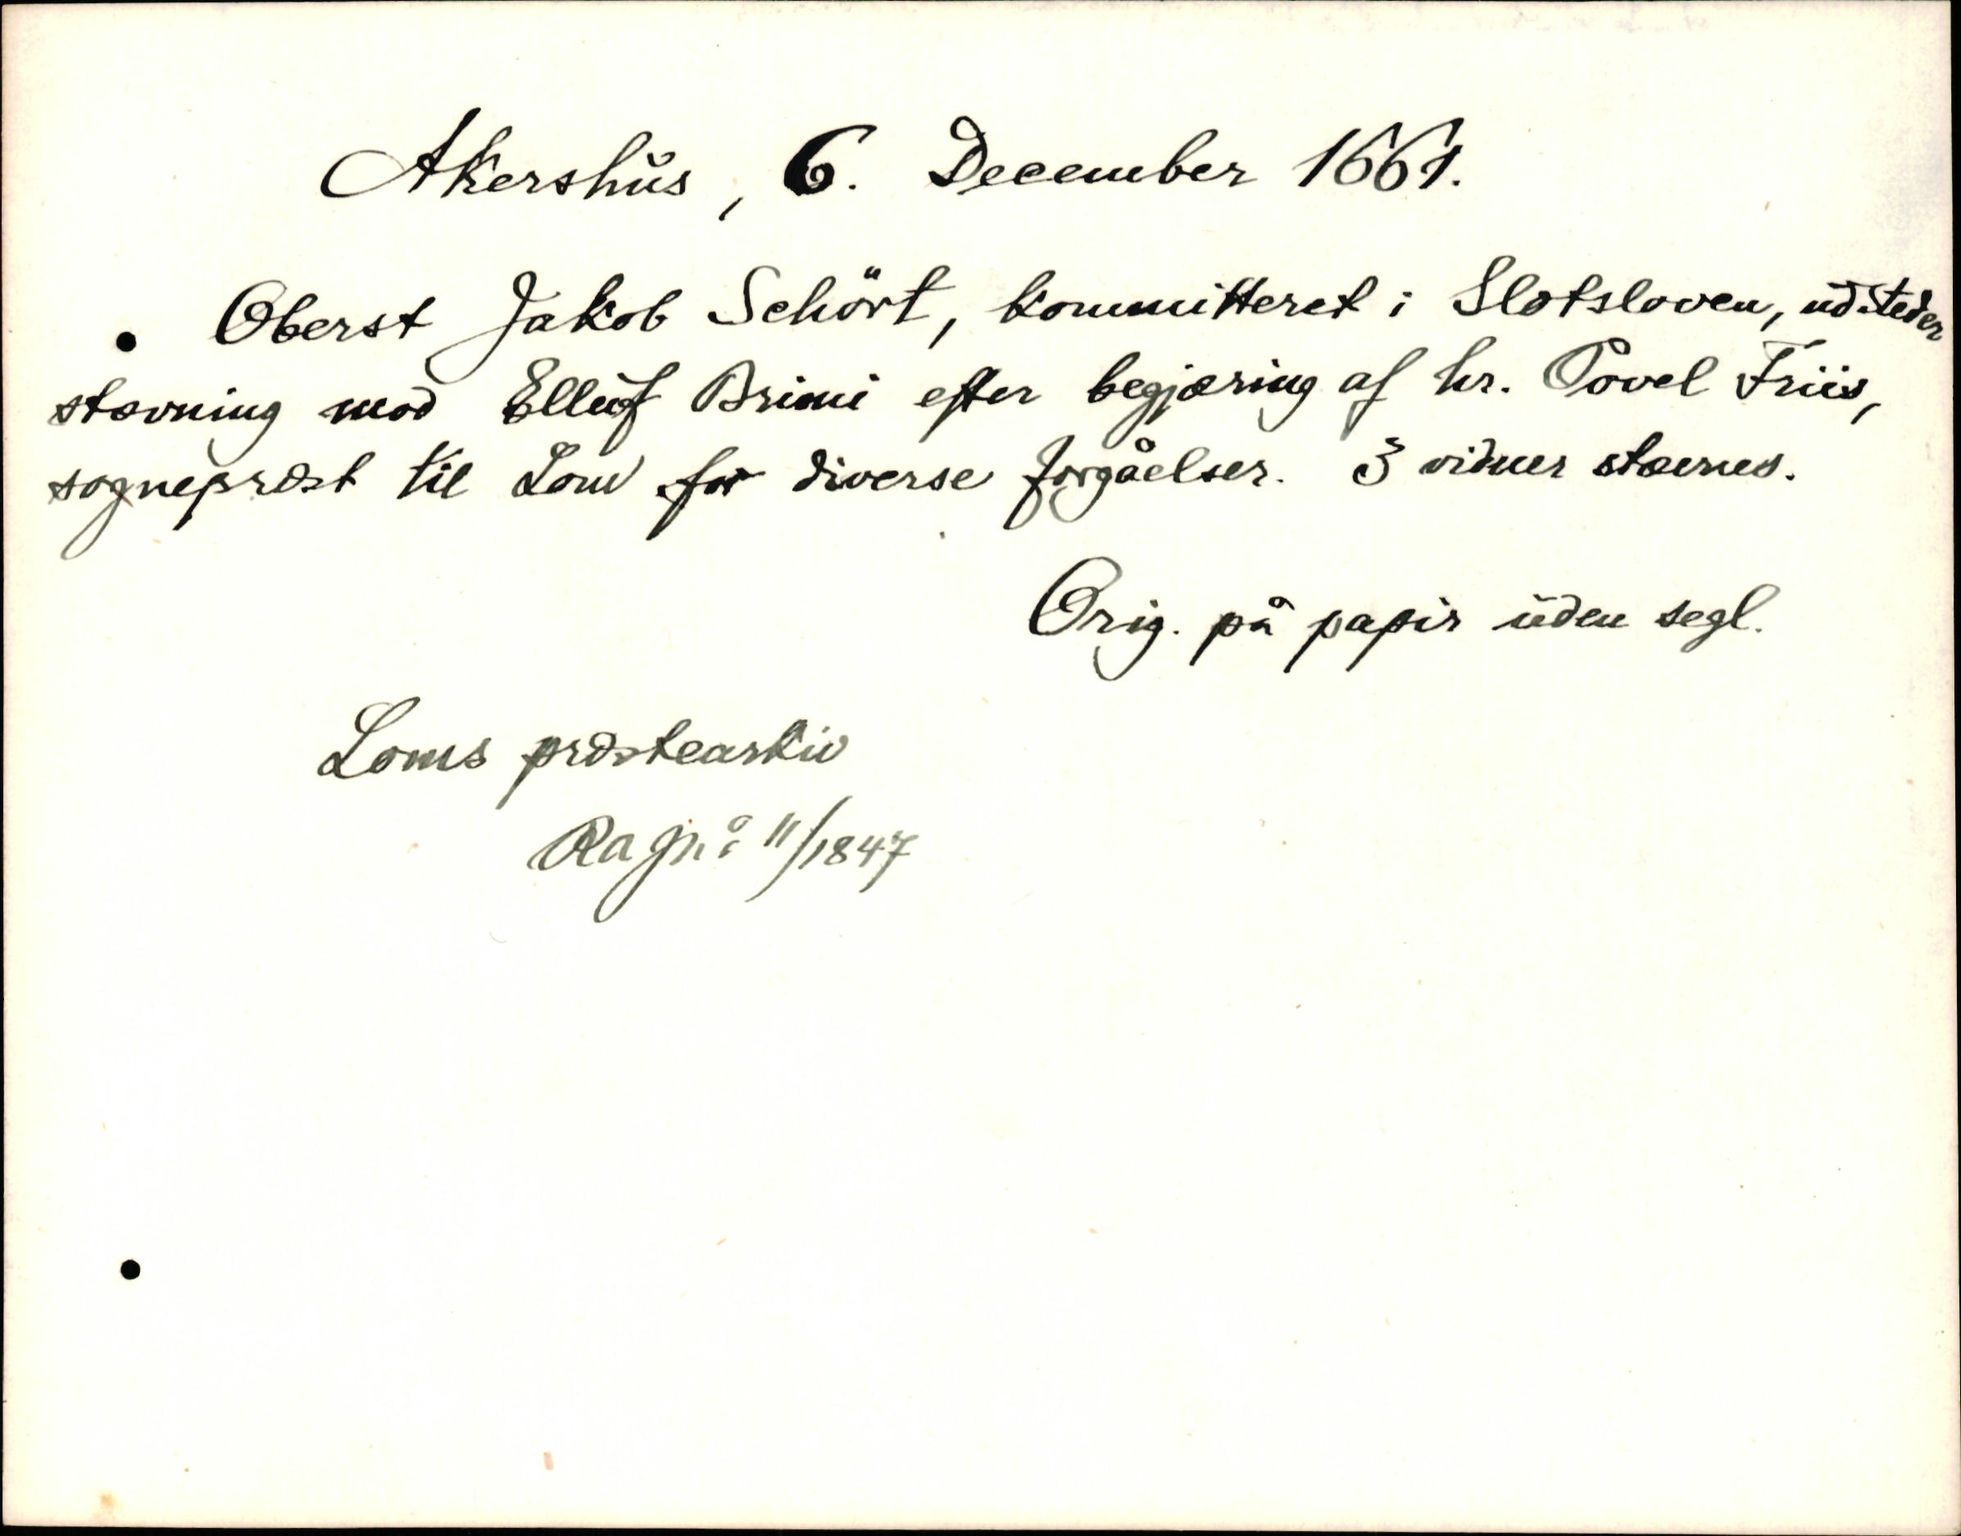 Akershus, 6. December 1661.
Oberst Jakob Schört, kommitteret i Slotsloven, udsteder
stævning mod Elluf Brimi efter begjæring af hr. Povel Friis,
sogneprest til Lom for diverse forgåelser. 3 vidner stævnes.
Orig. på papir uden segl.
Loms prestearkiv
Ra jnº 11/1847